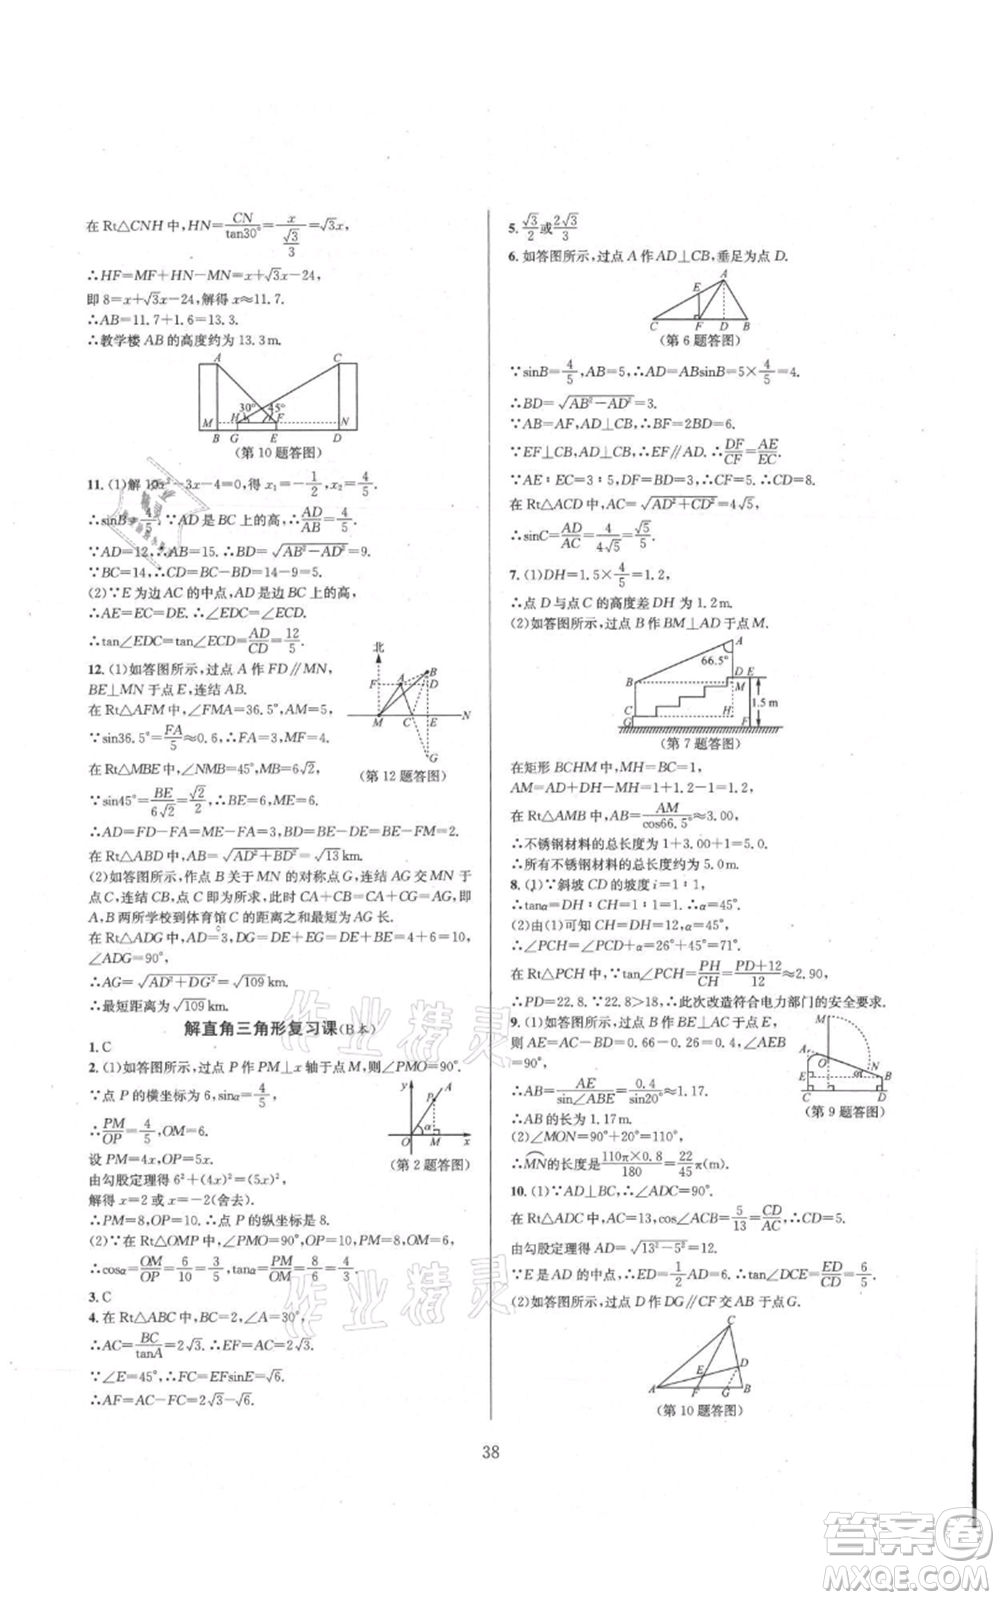 在 Rt△CNH 中,HN=CN/tan30°=x/(√3/3)=√3x,
∴HF=MF+HN-MN=x+√3x-24,
即 8=x+√3x-24,解得 x≈11.7.
∴AB=11.7+1.6=13.3.
∴教学楼 AB 的高度约为 13.3m.
A C
30° 45°
M H F N
B G E D
(第 10 题答图)
11. (1)解 10x²-3x-4=0,得 x₁=-1/2,x₂=4/5.
∴sinB=4/5.∵AD 是 BC 上的高,∴AD/AB=4/5.
∵AD=12,∴AB=15.∴BD=√(AB²-AD²)=9.
∵BC=14,∴CD=BC-BD=14-9=5.
(2)∵E 为边 AC 的中点,AD 是边 BC 上的高,
∴AE=EC=DE.∴∠EDC=∠ECD.
∴tan∠EDC=tan∠ECD=AD/CD=12/5.
12. (1)如答图所示,过点 A 作 FD∥MN,
BE⊥MN 于点 E,连结 AB.
在 Rt△AFM 中,∠FMA=36.5°,AM=5,
∵sin36.5°=FA/5≈0.6,∴FA=3,MF=4.
在 Rt△MBE 中,∠NMB=45°,MB=6√2,
∵sin45°=BE/6√2=√2/2,∴BE=6,ME=6.
∴AD=FD-FA=ME-FA=3,BD=BE-DE=BE-FM=2.
在 Rt△ABD 中,AB=√(AD²+BD²)=√13 km.
北
F A B D
M C E N
G
(第 12 题答图)
(2)如答图所示,作点 B 关于 MN 的对称点 G,连结 AG 交 MN 于
点 C,连结 CB,点 C 即为所求,此时 CA+CB=CA+CG=AG,即
A,B 两所学校到体育馆 C 的距离之和最短为 AG 长.
在 Rt△ADG 中,AD=3,DG=DE+EG=DE+BE=4+6=10,
∠ADG=90°,
∴AG=√(AD²+DG²)=√109 km.
∴最短距离为√109 km.
解直角三角形复习课(B本)
1. C
2. (1)如答图所示,过点 P 作 PM⊥x 轴于点 M,则∠PMO=90°.
∵点 P 的横坐标为 6,sinα=4/5,
∴PM/OP=4/5,OM=6.
设 PM=4x,OP=5x.
由勾股定理得 6²+(4x)²=(5x)²,
解得 x=2 或 x=-2(舍去).
∴PM=8,OP=10.∴点 P 的纵坐标是 8.
y A
P
α
O M x
(第 2 题答图)
(2)∵在 Rt△OMP 中,∠PMO=90°,OM=6,PM=8,
∴cosα=OM/OP=6/10=3/5,tanα=PM/OM=8/6=4/3.
3. C
4. 在 Rt△ABC 中,BC=2,∠A=30°,
∴AC=BC/tanA=2√3.∴EF=AC=2√3.
∵∠E=45°,∴FC=EFsinE=√6.
∴AF=AC-FC=2√3-√6.
5. √3/2或2√3/3
6. 如答图所示,过点 A 作 AD⊥CB,垂足为点 D.
A
E
C F D B
(第 6 题答图)
∵sinB=4/5,AB=5,∴AD=ABsinB=5×4/5=4.
∴BD=√(AB²-AD²)=3.
∵AB=AF,AD⊥CB,∴BF=2BD=6.
∵EF⊥CB,AD⊥CB,∴EF∥AD.∴DF/CF=AE/EC.
∵AE:EC=3:5,DF=BD=3,∴CF=5.∴CD=8.
在 Rt△ACD 中,AC=√(AD²+CD²)=4√5,
∴sinC=AD/AC=4/4√5=√5/5.
7. (1)DH=1.5×4/5=1.2,
∴点 D 与点 C 的高度差 DH 为 1.2m.
(2)如答图所示,过点 B 作 BM⊥AD 于点 M.
A
66.5°
D E
B M
1.5 m
C H
G F
(第 7 题答图)
在矩形 BCHM 中,MH=BC=1,
AM=AD+DH-MH=1+1.2-1=1.2.
在 Rt△AMB 中,AB=AM/cos66.5°≈3.00,
∴不锈钢材料的总长度为 1+3.00+1=5.00.
∴所有不锈钢材料的总长度约为 5.0m.
8. (1)∵斜坡 CD 的坡度 i=1:1,
∴tanα=DH:CH=1:1=1.∴α=45°.
(2)由(1)可知 CH=DH=12,α=45°,
∴∠PCH=∠PCD+α=26°+45°=71°.
在 Rt△PCH 中,∵tan∠PCH=PH/CH=PD+12/12≈2.90,
∴PD=22.8.∵22.8>18,∴此次改造符合电力部门的安全要求.
9. (1)如答图所示,过点 B 作 BE⊥AC 于点 E,
则 AE=AC-BD=0.66-0.26=0.4,∠AEB
=90°,
∴AB=AE/sin∠ABE=0.4/sin20°≈1.17.
∴AB 的长为 1.17m.
(2)∠MON=90°+20°=110°,
∴MN的长度是110π×0.8/180=22/45π(m).
M
A O N
E B
C D
(第 9 题答图)
10. (1)∵AD⊥BC,∴∠ADC=90°.
在 Rt△ADC 中,AC=13,cos∠ACB=5/13=CD/AC,∴CD=5.
由勾股定理得 AD=√(13²-5²)=12.
∵E 是 AD 的中点,∴ED=1/2AD=6.∴tan∠DCE=ED/CD=6/5.
(2)如答图所示,过点 D 作 DG∥CF 交 AB 于点 G.
C
E D
A F G B
(第 10 题答图)
38
作业精灵
作业精灵
答案卷
MXQE.COM